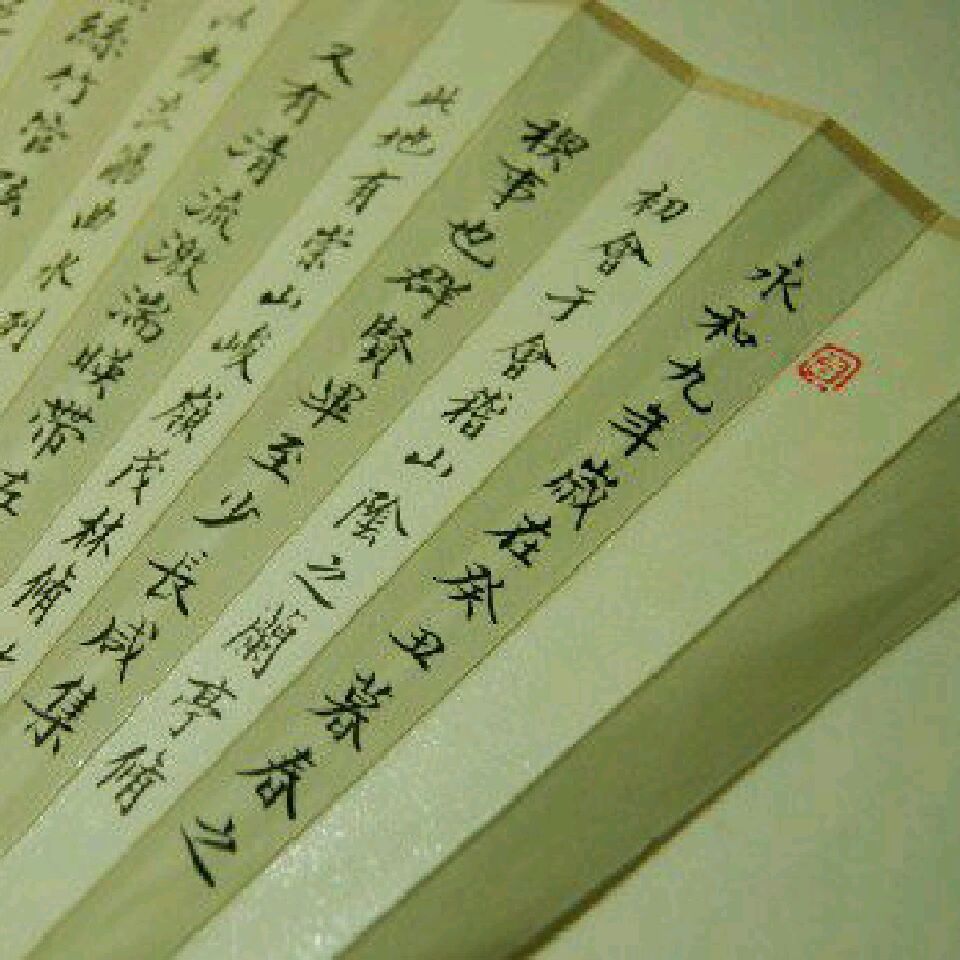 永和九年歲在癸丑暮春之
初會于會稽山陰之蘭亭脩
禊事也群賢畢至少長咸集
此地有崇山峻嶺茂林脩
又有清流激湍暎帶左
以為流觴曲水列
絲竹管弦